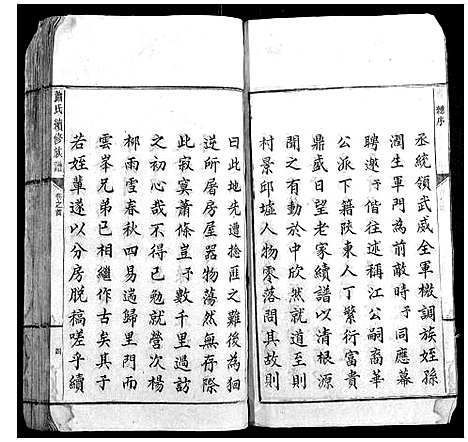 總序
丞統領武威全軍檄調族姪孫
潤生軍門為前敵時予同應幕
聘邀予偕往述稱江公嗣裔華
公派下籍陝東人丁繁衍富貴
鼎盛日望老家續譜以清根源
聞之有動於中欣然就道至則
村景邱墟人物零落問其故則
曰此地先遭捻匪之難後為洄
逆所屠房屋器物蕩然無存際
此寂寞蕭條豈予數千里過訪
文初心哉不得已勉就營次楊
柳雨雪春秋四易遄歸里門而
雲峯兄弟已相繼作古矣其子
若姪輩遂以分房脫稿嗟乎續
蕭氏續修族譜
卷之首
四